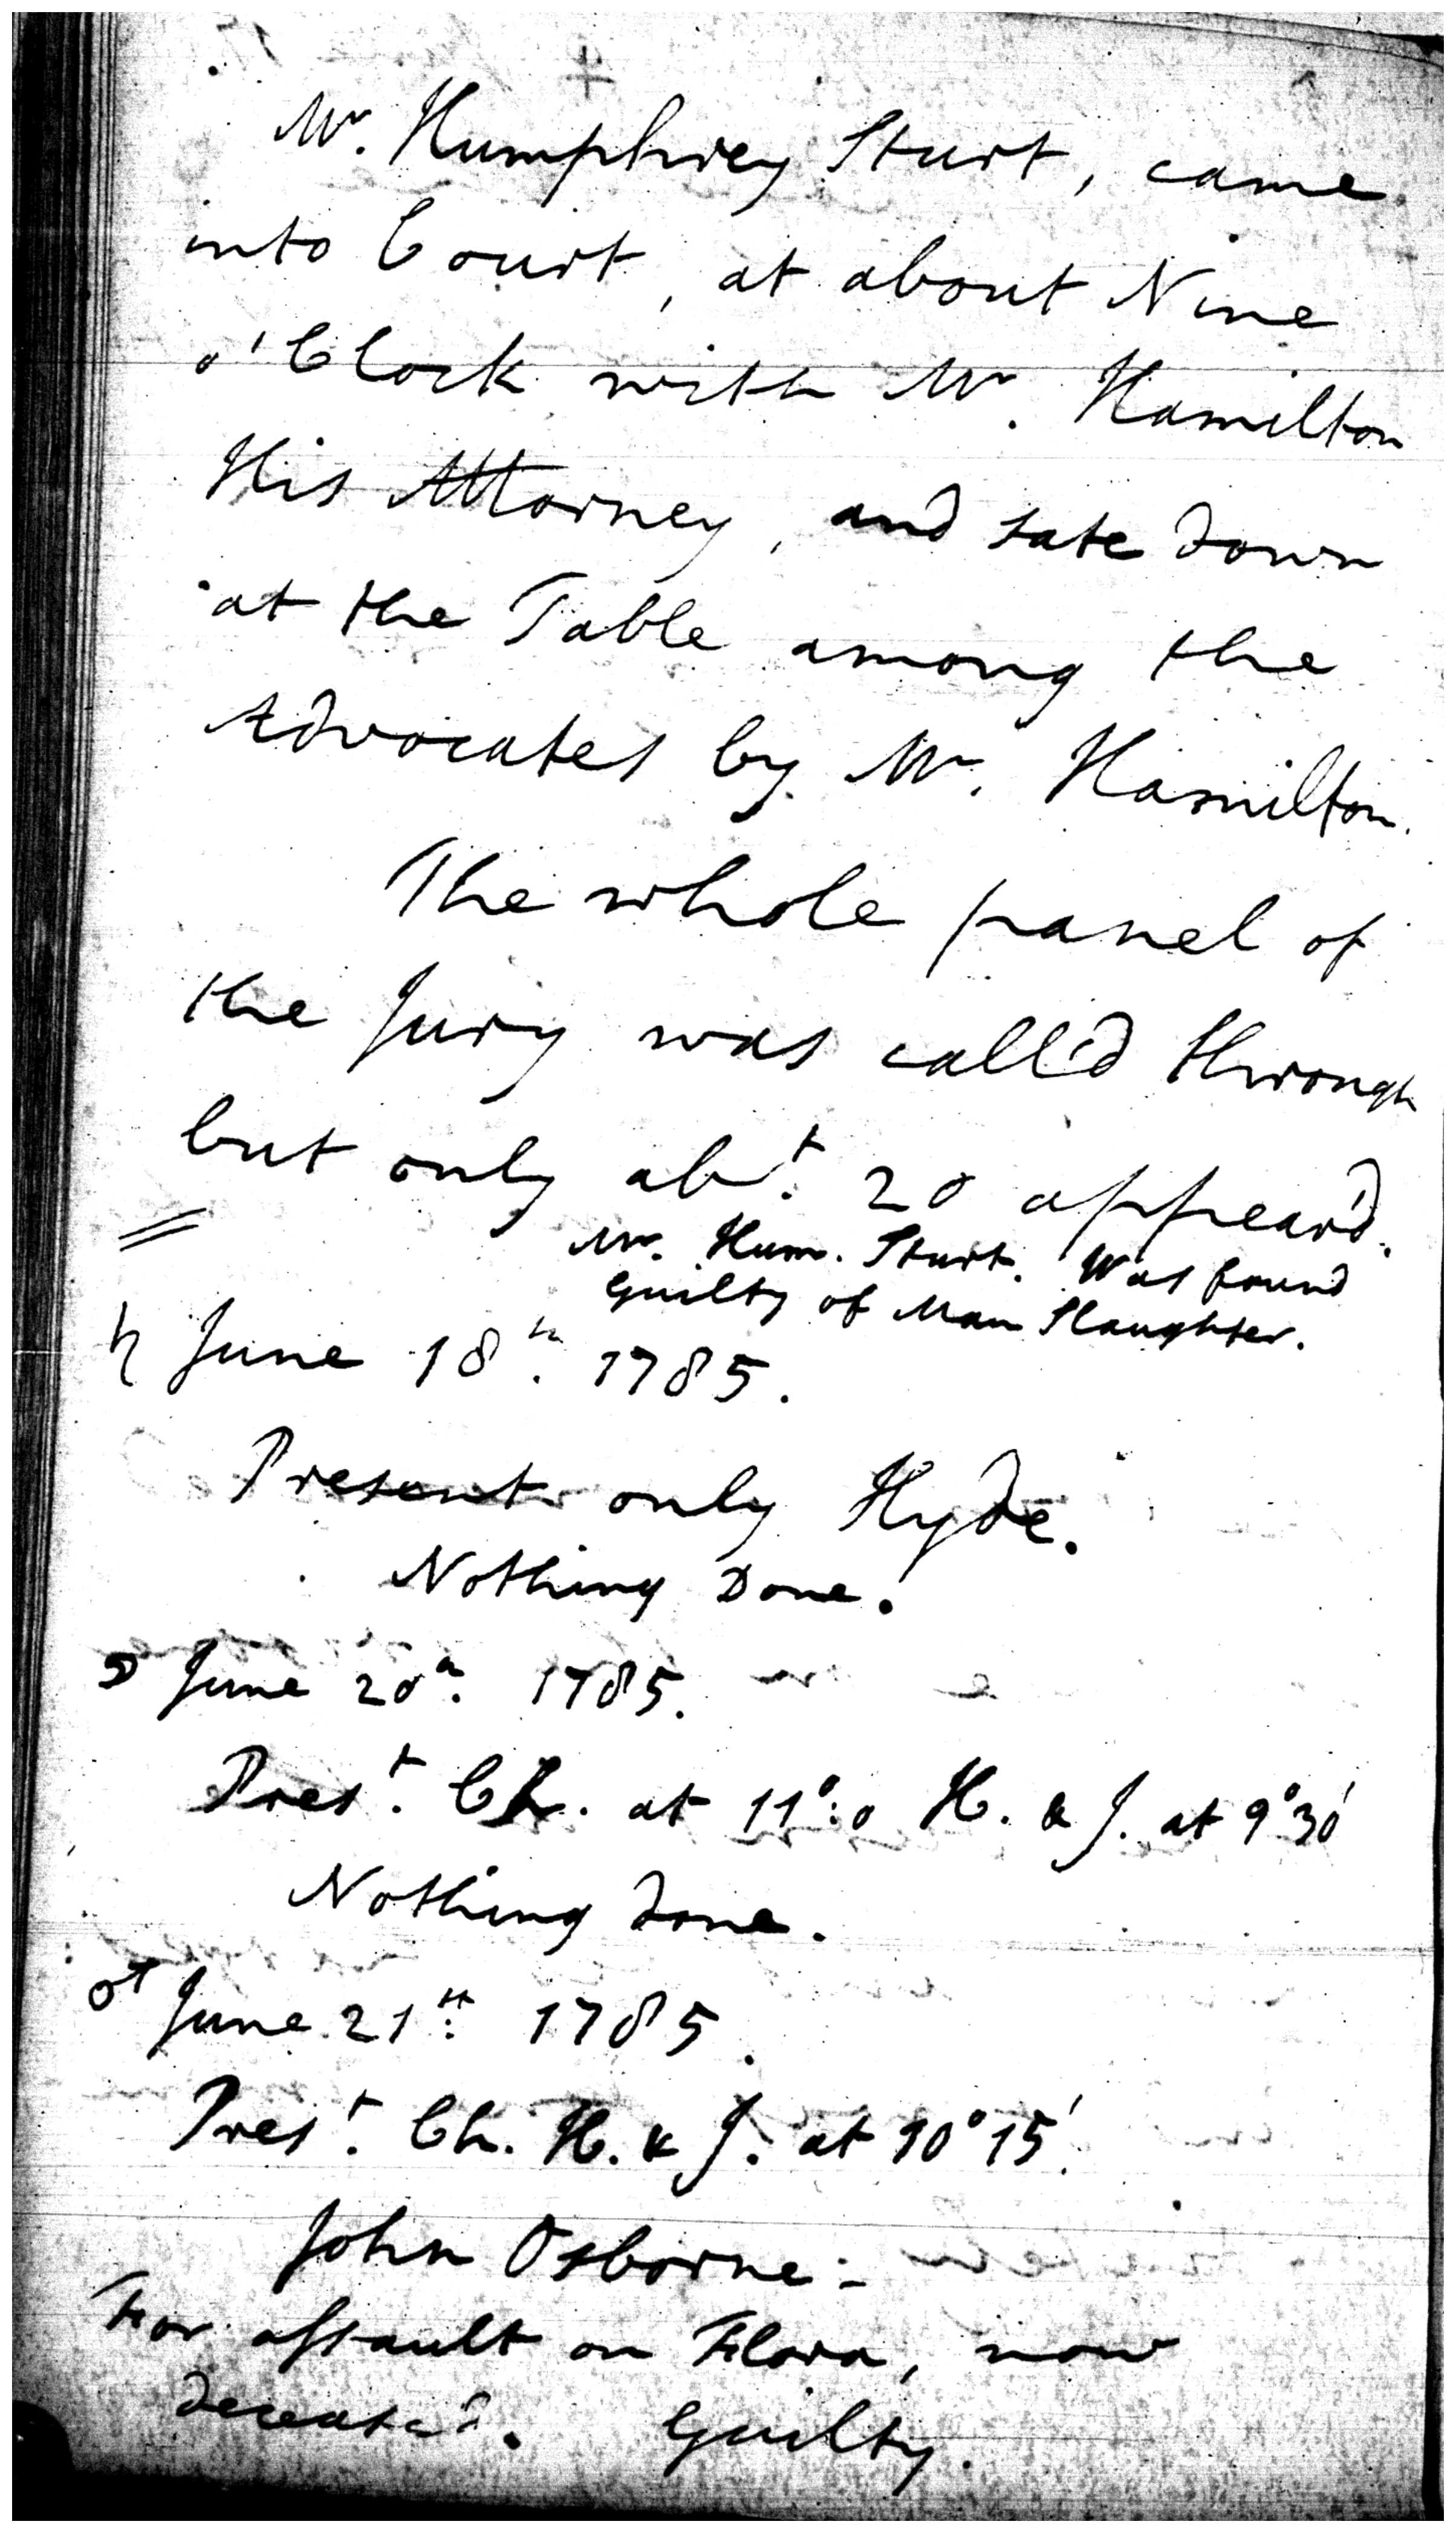 Mr. Humphrey Sturt, came
into Court, at about Nine
o'Clock with Mr. Hamilton
His Attorney, and sate down
at the Table among the
Advocates by Mr. Hamilton.
The whole panel of
the Jury was call'd through
but only abt. 20 appear'd.
Mr. Hum. Sturt. Was found
guilty of Man Slaughter.
♄ June 18th. 1785.
Present only Hyde.
Nothing Done.
☽ June 20th. 1785.
Prest. Ch. at 11°:0 H. & J. at 9°30'
Nothing done.
♂ June 21st. 1785.
Prest. Ch. H. & J. at 10°15'.
John Osborne:
For assault on Flora, now
deceased. Guilty.